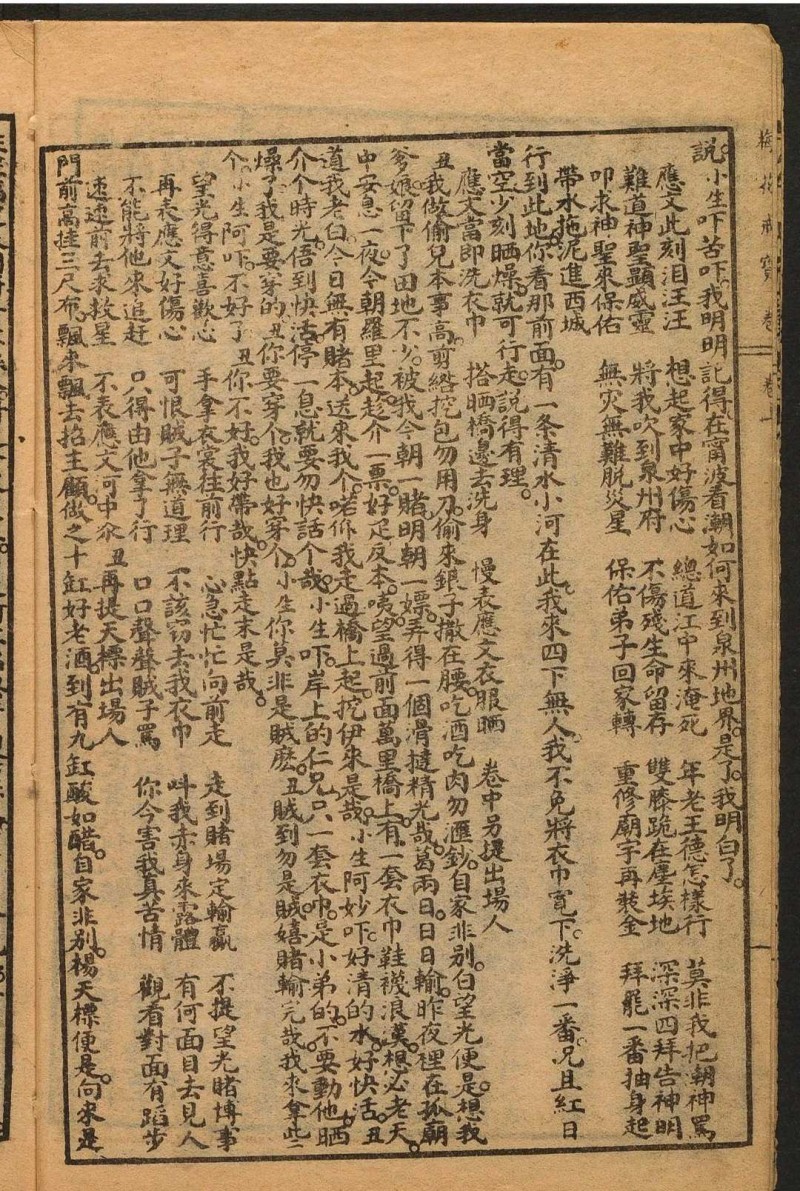 說。小生吓苦吓。我明明記得在甯波看潮。如何來到泉州地界。是了。我明白了。
應文此刻泪汪汪 想起家中好傷心 總道江中來淹死 年老王德怎樣行 莫非我把潮神罵
難道神聖顯威靈 將我吹到泉州府 不傷殘生命留存 雙膝跪在塵埃地 深深四拜告神明
叩求神聖來保佑 無灾無難脱災星 保佑弟子回家轉 重修廟宇再裝金 拜罷一番抽身起
帶水拖泥進西城
行到此地。你看那前面。有一条清水小河在此。我來四下無人。我不免將衣巾寬下。洗淨一番。況且紅日
當空。少刻晒燥。就可行走。說得有理。
應文當即洗衣巾 搭晒橋邊去洗身 慢表應文衣服晒 卷中另提出場人
丑我做偷兒本事高。剪綹挖包勿用刀。偷來銀子撒在腰。吃酒吃肉勿滙鈔。自家非別。白望光便是。想我
爹娘留下了田地不少。被我今朝一賭。明朝一嫖。弄得一個滑撻精光哉。葛兩日日日輸。昨夜裡在孤廟
中安息一夜。今朝羅里起起介一票。好疋反本。咦望過前面萬里橋上。有一套衣巾鞋襪浪漢。想必老天
道我老白今日無有賭本。送來我个。喏俤我走過橋上起。挖伊來是哉。小生阿妙吓好清的水。好快活。丑
介个時光倍到快活。停一息就要勿快話个哉。小生吓。岸上的仁兄。只一套衣巾。是小弟的。不要動他。晒
燥了我是要穿的。丑你要穿个。我也好穿个。小生你莫非是賊麽。丑賊到勿是賊。嬉賭輸完哉。我來拿此二
个。小生阿吓不好了。丑你不好。我好帶哉。快點走末是哉。
望光得意喜歡心 手拿衣裳往前行 心急忙忙向前走 走到賭場定輸贏 不提望光賭博事
再表應文好傷心 可恨賊子無道理 不該窃去我衣巾 叫我赤身來露體 有何面目去見人
不能將他來追赶 只得由他拿了行 口口聲聲賊子罵 你今害我真苦情 觀看對面有蹈步
速速前去求救星 不表應文河中尒 丑再提天標出場人
門前高挂三尺布。飄來飄去招主顧。做之十缸好老酒。到有九缸酸如醋。自家非別。楊天標便是。向來是
梅花戒寶卷 卷上
一